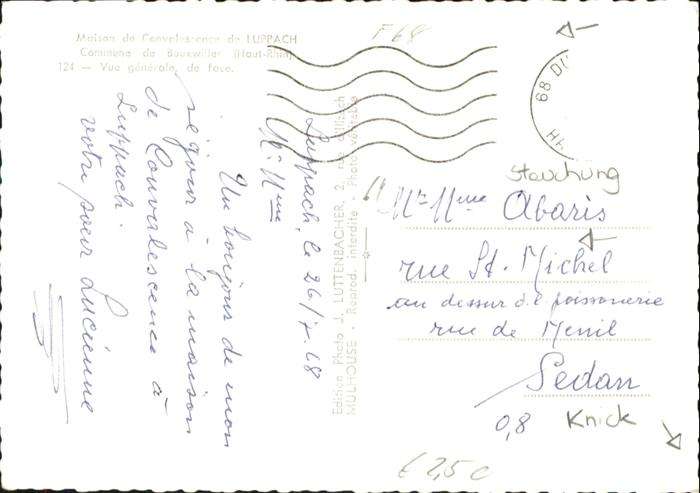 Maison de Convalescence de LUPPACH
Commune de Bouxwiller (Haut-Rhin)
124 — Vue générale, de face.
F68
68 DU
HA
Luppach, le 26/7.68
Mr Mme
Un bonjour de mon
sejour à la maison
de Convalescence à
Luppach.
votre soeur Lucienne
Edition Photo J. LUTTENBACHER, 2, rue d'Illzach
MULHOUSE - Reprod. interdite - Photo véritable
Stauchung
Mr Mme Abaris
rue St. Michel
au dessus de poissonerie
rue de Menil
Sedan
0,8
Knick
€ 2,50